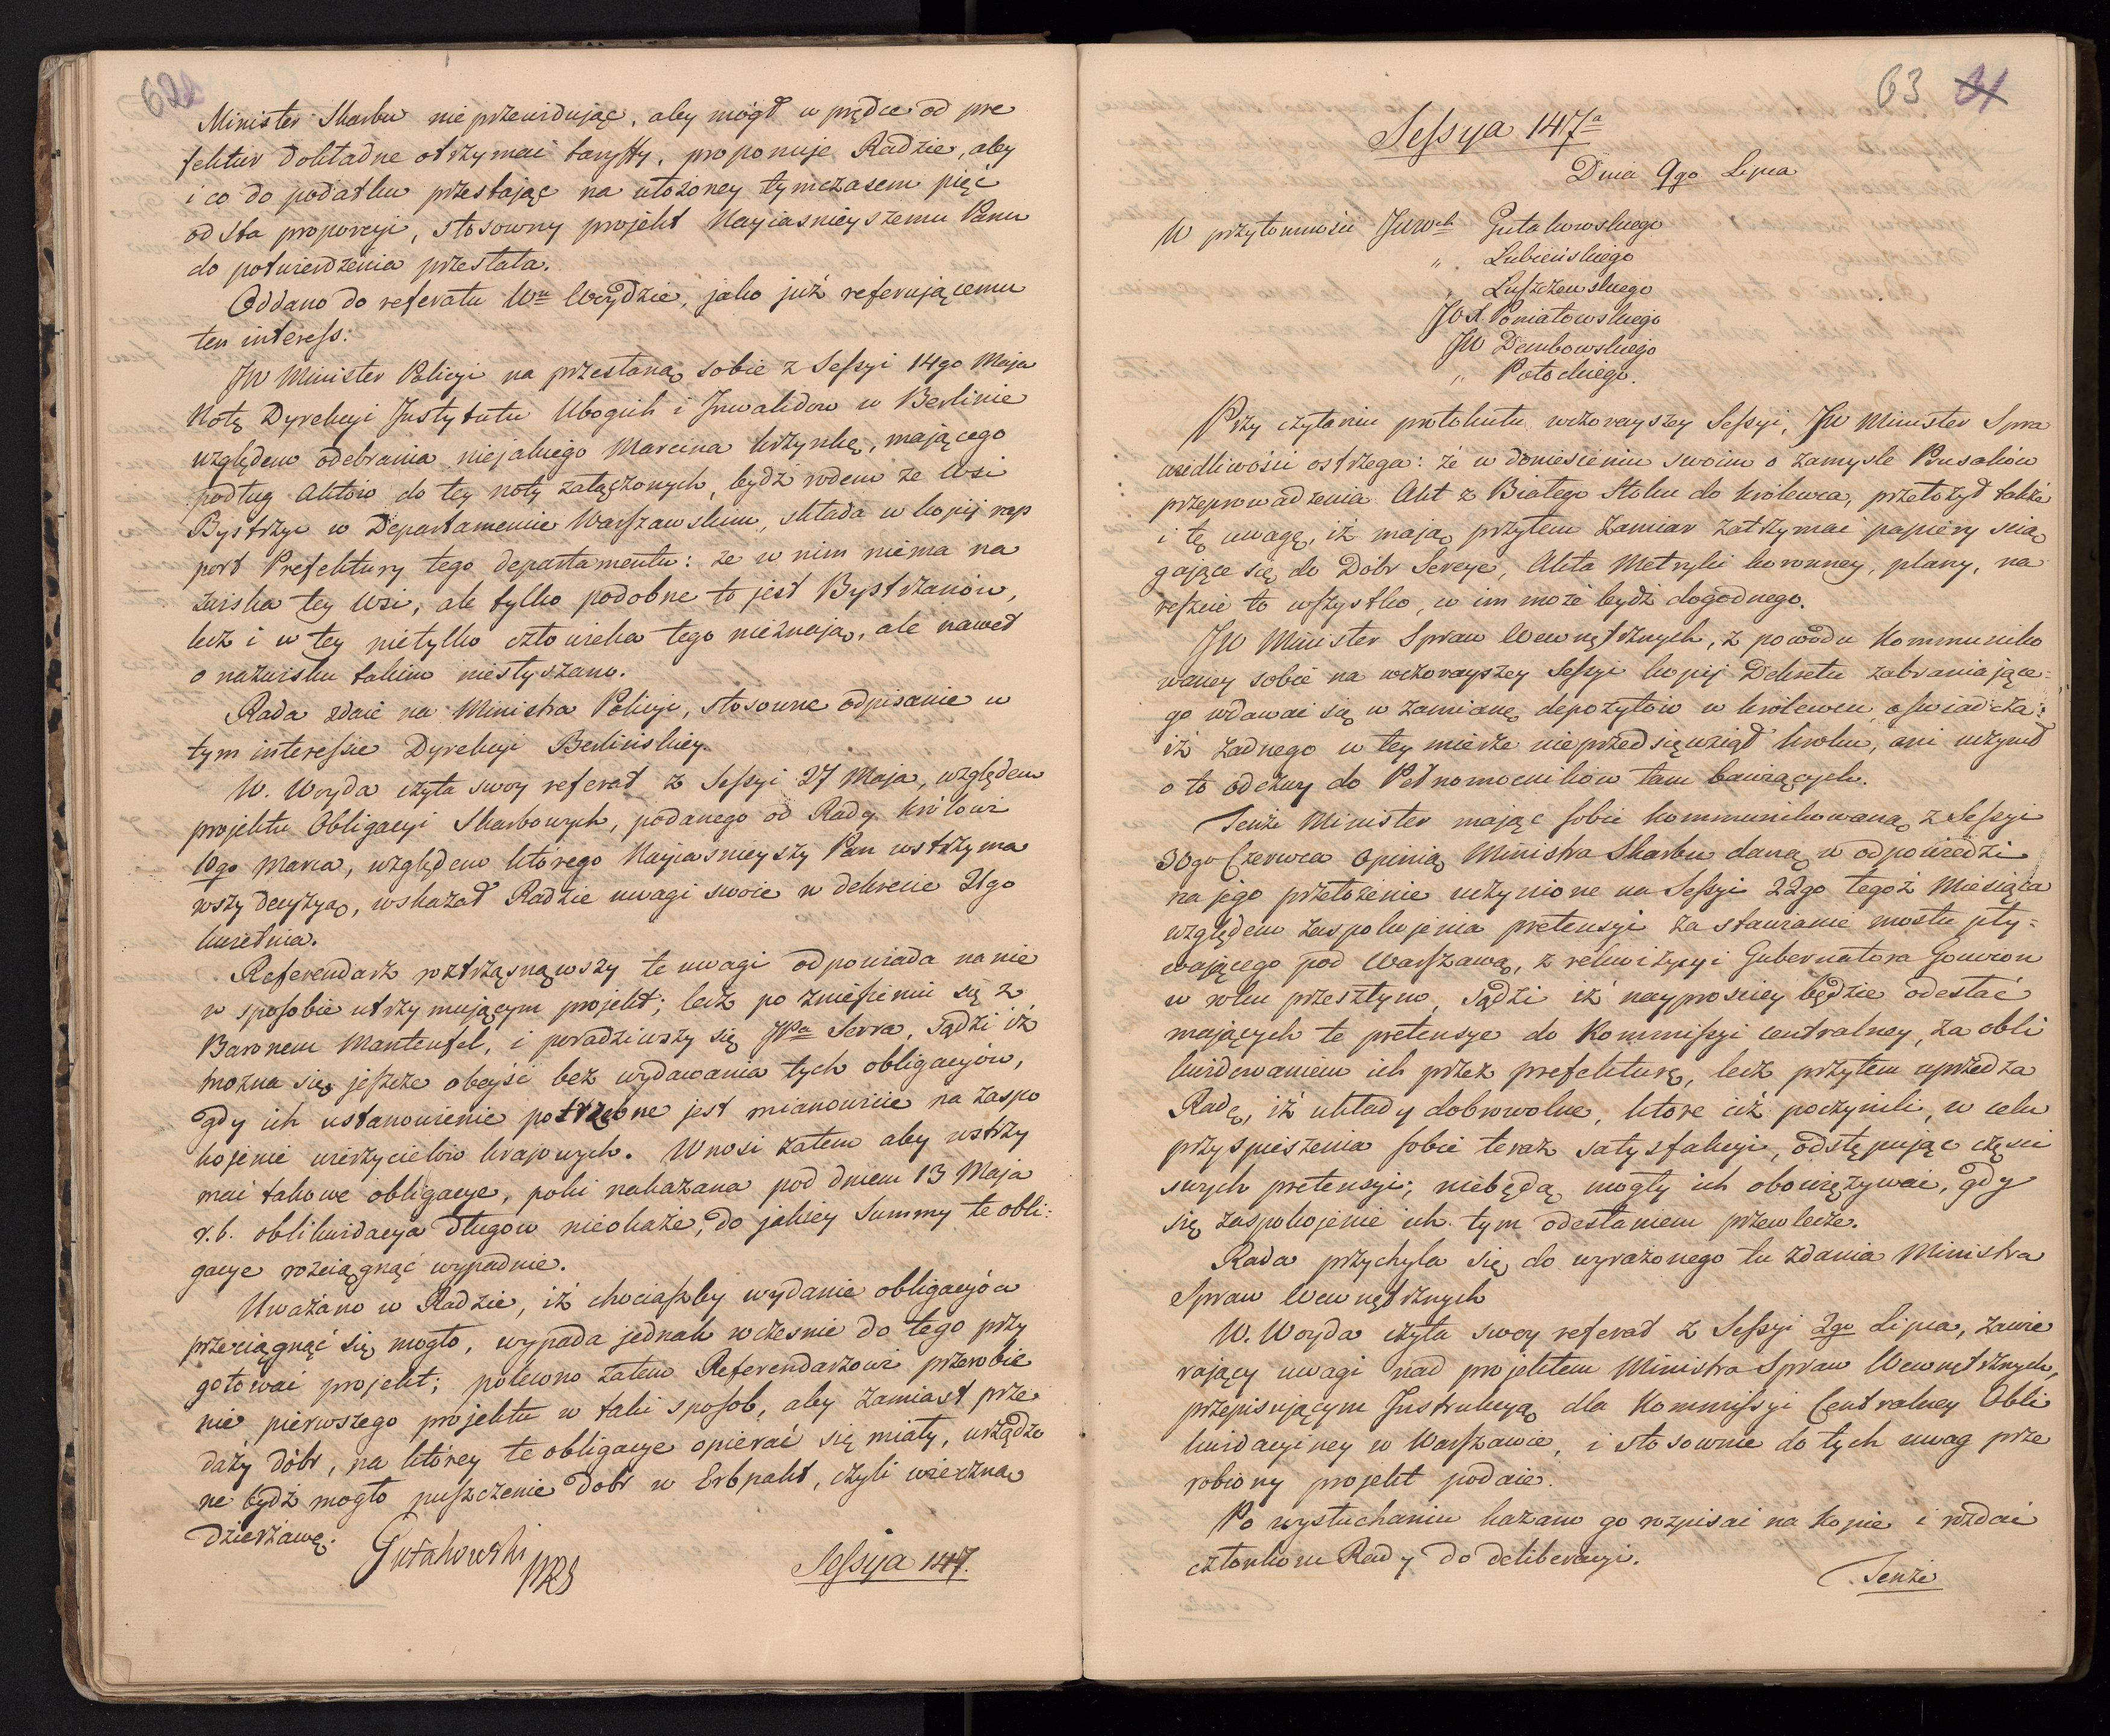 62
Minister Skarbu nie przewidując, aby mógł w prędce od pre
fektur dokładne otrzymać taryffy, proponuje Radzie, aby
i co do podatku przestając na ułożoney tymczasem pięć
od sta proporcyi, stosowny projekt Nayiaśnieyszemu Panu
do potwierdzenia przesłała.
Oddano do referatu Wu Woydzie, jako już referującemu
ten interess:
JW Minister Policyi na przesłaną sobie z Sessyi 14go Maja
Notę Dyrekcyi Instytutu Ubogich i Inwalidow w Berlinie
względem odebrania niejakiego Marcina Krzynkę, mającego
podług Aktów do tey noty załączonych, bydź rodem ze Wsi
Bystrzyc w Departamencie Warszawskim, składa w kopij rap
port Prefektury tego departamentu: że w nim niema na
zwiska tey Wsi, ale tylko podobne to jest Bystrzanów,
lecz i w tey nietylko człowieka tego nieznają, ale nawet
o nazwisku takim niesłyszano.
Rada zdaie na Ministra Policyi, stosowne odpisanie w
tym interessie Dyrekcyi Berlińskiey.
W. Woyda czyta swoy referat z Sessyi 27 Maja, względem
projektu Obligacyi Skarbowych, podanego od Rady Królowi
10go Marca, względem którego Nayiaśnieyszy Pan wstrzyma
wszy decyzyą, wskazał Radzie uwagi swoie w dekrecie 21go
kwietnia.
Referendarz roztrząsnąwszy te uwagi odpowiada na nie
w sposobie utrzymującym projekt; lecz po zniesieniu się z
Baronem Manteufel, i poradziwszy się JPa Serra, sądzi iż
można się jeszcze obeyść bez wydawania tych obligacyów,
gdy ich ustanowienie potrzebne jest mianowicie na zaspo
kojenie wierzycielów krajowych. Wnosi zatem aby wstrzy
mać takowe obligacye, poki nakazana pod dniem 13 Maja
r.b. oblikwidacya długow nieokaże, do jakiey Summy te obli:
gacye rozciągnąć wypadnie.
Uważano w Radzie, iż chociażby wydanie obligacyów
przeciągnąć się mogło, wypada jednak wcześnie do tego przy
gotować projekt; polecono zatem Referendarzowi przerobie
nie pierwszego projektu w taki sposob, aby zamiast prze
daży dóbr, na którey te obligacye opierać się miały, urządzo
ne bydź mogło puszczenie Dobr w Erbpakt, czyli wieczną
Dzierżawę.
Gutakowski
PRS
Sessya 147.
63 31
Sessya 147a
Dnia 9go Lipca
W przytomności JWWch Gutakowskiego
" Lubieńskiego
" Luszczewskiego
JOX. Poniatowskiego
JW Dembowskiego
" Potockiego.
Przy czytaniu protokułu wczorayszey Sessyi, JW Minister Spra
wiedliwości ostrzega: że w doniesieniu swoim o zamyśle Prusaków
przeprowadzenia Akt z Białego Stoku do Królewca, przełożył także
i tę uwagę, iż mają przytem zamiar zatrzymać papiery ścią
gające się do Dóbr Sereye, Akta Metryki koronney, plany, na
reszcie to wszystko, w im może bydź dogodnego.
JW Minister Spraw Wewnętrznych, z powodu Kommuniko
waney sobie na wczorayszey Sessyi kopij Dekretu zabraniające:
go wdawać się w zamianę depozytow w Królewcu, oświadcza:
iż żadnego w tey mierze nieprzedsięwziął kroku, ani uczynił
o to odezwy do Pełnomocników tam bawiących.
Tenże Minister mając sobie kommunikowaną z Sessyi
30go Czerwca Opinią Ministra Skarbu daną w odpowiedzi
na jego przełożenie uczynione na Sessyi 22go tegoż Miesiąca
względem zaspokojenia pretensyi za stawianie mostu pły=
wającego pod Warszawą, z rekwizycyi Gubernatora Gouvion
w roku przeszłym, sądzi iż nayprościey będzie odesłać
mających te pretensye do Kommissyi Centralney, za obli
kwidowaniem ich przez prefekturę, lecz przytem uprzedza
Radę, iż układy dobrowolne, ktore ciż poczynili, w celu
przyspieszenia sobie teraz satysfakcyi, odstępując części
swych pretensyi; niebędą mogły ich obowięzywać, gdy
się zaspokojenie ich tym odesłaniem przewlecze.
Rada przychyla się do wyrażonego tu zdania Ministra
Spraw Wewnętrznych
W. Woyda czyta swoy referat z Sessyi 2go Lipca, zawie
rający uwagi nad projektem Ministra Spraw Wewnętrznych,
przepisującym Instrukcyą dla Kommissyi Centralney Obli
kwidacyiney w Warszawie, i stosownie do tych uwag prze
robiony projekt podaie.
Po wysłuchaniu kazano go rozpisać na Kopie i rozdać
członkom Rady do deliberacyi.
Tenże